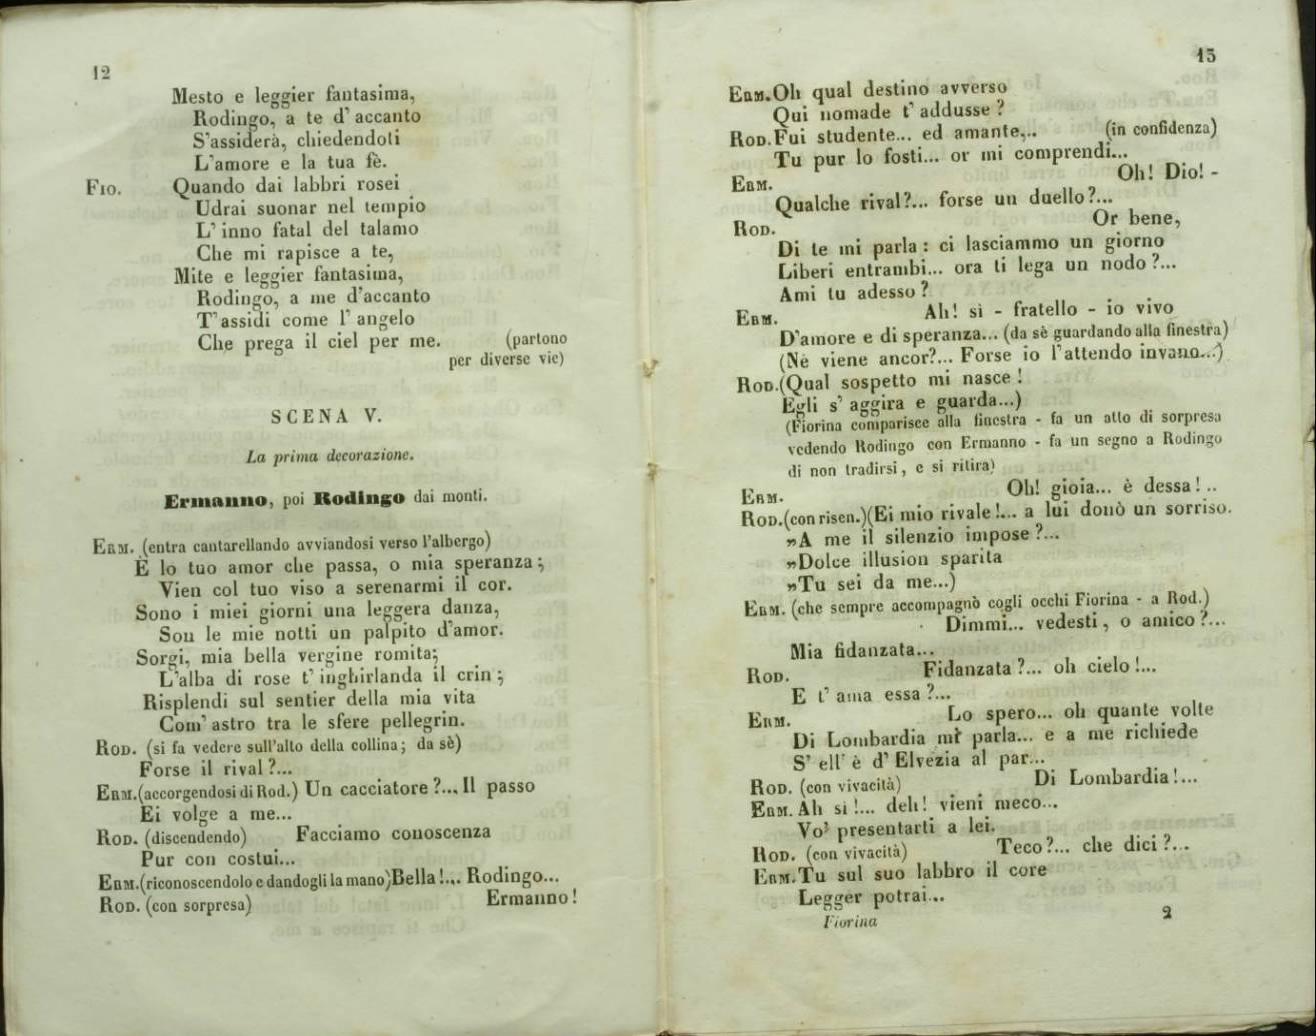 12
Mesto e leggier fantasima,
Rodingo, a te d'accanto
S'assiderà, chiedendoti
L'amore e la tua fè.
FIO. Quando dai labbri rosei
Udrai suonar nel tempio
L'inno fatal del talamo
Che mi rapisce a te,
Mite e leggier fantasima,
Rodingo, a me d'accanto
T'assidi come l'angelo
Che prega il ciel per me. (partono
per diverse vie)
SCENA V.
La prima decorazione.
Ermanno, poi Rodingo dai monti.
ERM. (entra cantarellando avviandosi verso l'albergo)
È lo tuo amor che passa, o mia speranza;
Vien col tuo viso a serenarmi il cor.
Sono i miei giorni una leggera danza,
Son le mie notti un palpito d'amor.
Sorgi, mia bella vergine romita;
L'alba di rose t'inghirlanda il crin;
Risplendi sul sentier della mia vita
Com'astro tra le sfere pellegrin.
ROD. (si fa vedere sull'alto della collina; da sè)
Forse il rival?...
ERM. (accorgendosi di Rod.) Un cacciatore?... Il passo
Ei volge a me...
ROD. (discendendo) Facciamo conoscenza
Pur con costui...
ERM. (riconoscendolo e dandogli la mano) Bella!... Rodingo...
ROD. (con sorpresa) Ermanno!
13
ERM. Oh qual destino avverso
Qui nomade t'addusse?
ROD. Fui studente... ed amante... (in confidenza)
Tu pur lo fosti... or mi comprendi...
ERM. Oh! Dio! -
Qualche rival?... forse un duello?...
ROD. Or bene,
Di te mi parla: ci lasciammo un giorno
Liberi entrambi... ora ti lega un nodo?...
Ami tu adesso?
ERM. Ah! sì - fratello - io vivo
D'amore e di speranza... (da sè guardando alla finestra)
(Nè viene ancor?... Forse io l'attendo invano...)
ROD. (Qual sospetto mi nasce!
Egli s'aggira e guarda...)
(Fiorina comparisce alla finestra - fa un atto di sorpresa
vedendo Rodingo con Ermanno - fa un segno a Rodingo
di non tradirsi, e si ritira)
ERM. Oh! gioia... è dessa!..
ROD. (con risen.) (Ei mio rivale!... a lui donò un sorriso.
„A me il silenzio impose?...
„Dolce illusion sparita
„Tu sei da me...)
ERM. (che sempre accompagnò cogli occhi Fiorina - a Rod.)
Dimmi... vedesti, o amico?...
Mia fidanzata...
ROD. Fidanzata?... oh cielo!...
E t'ama essa?...
ERM. Lo spero... oh quante volte
Di Lombardia mi parla... e a me richiede
S'ell'è d'Elvezia al par...
ROD. (con vivacità) Di Lombardia!...
ERM. Ah sì!... deh! vieni meco...
Vo' presentarti a lei.
ROD. (con vivacità) Teco?... che dici?...
ERM. Tu sul suo labbro il core
Legger potrai...
Fiorina 2